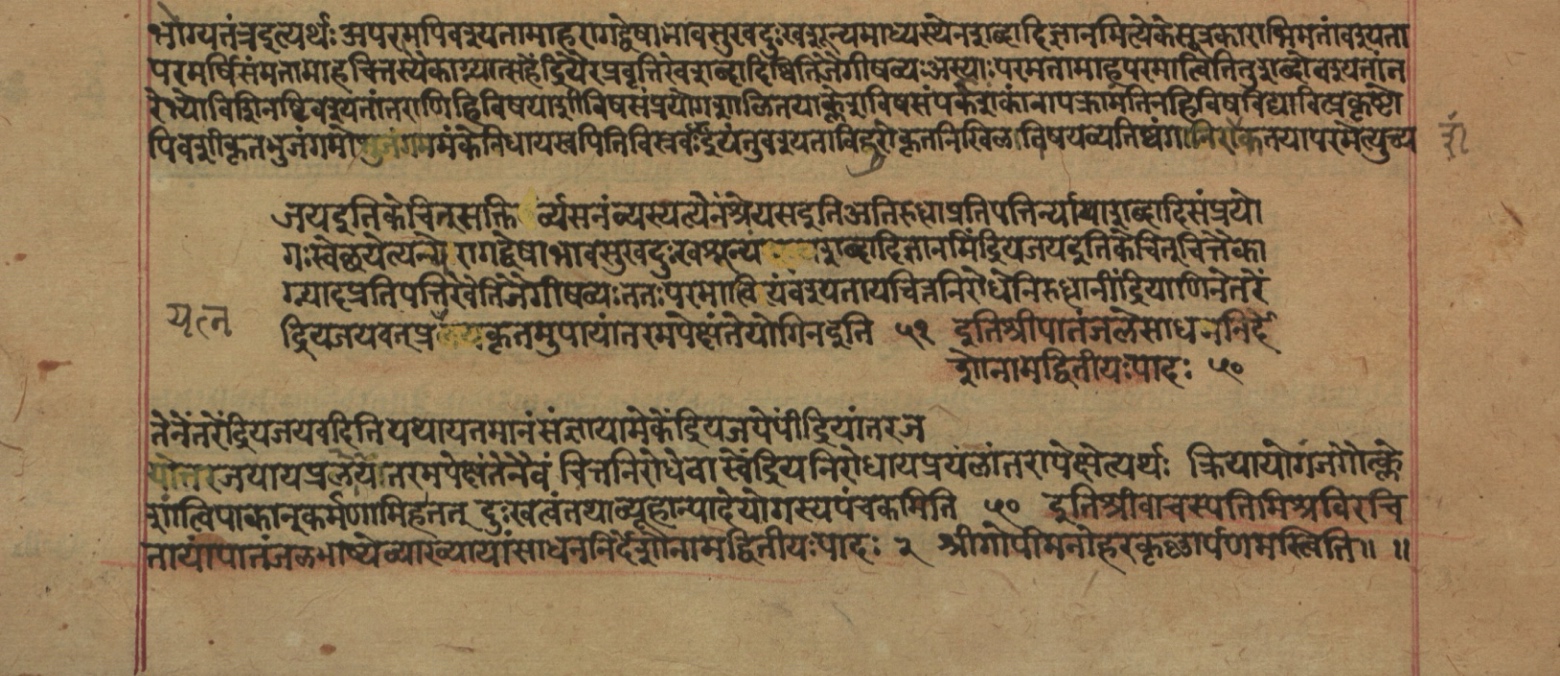 भोग्यतंत्रइत्यर्थः अपरमपिवश्यतामाहरागद्वेषाभावसुखदुःखशून्यमाध्यस्थेनशब्दादिज्ञानमित्येकेसूत्रकाराभिमतांवश्यता
परमर्षिसंमतामाहचित्तस्यैकाग्र्यात्सहेंद्रियैरप्रवृत्तिरेवशब्दादिष्वितिजैगीषव्यः अस्याः परमतामाहपरमात्वितितुशब्दोवश्यतांत
रेभ्योविशिनष्टिवश्यतांतराणिहिविषयाशीविषसंप्रयोगशालितयाक्लेशविषसंपर्कशंकांनापक्रामंतिनहिविषविद्यावित्प्रकृष्टो
पिवशीकृतभुजंगमोभुजंगममंकेनिधायस्वपितिविस्रब्धः इयंतुवश्यताविदूरीकृतनिखिलविषयव्यतिषंगानिराशंकतयापरमेत्युच्य
जयइतिकेचित्सक्तिर्व्यसनंव्यस्यत्येनंश्रेयसइतिअविरुद्धाप्रतिपत्तिर्न्याय्याशब्दादिसंप्रयो
गःस्वेछयेत्यन्येरागद्वेषाभावसुखदुःखशून्यंशब्दादिज्ञानमिंद्रियजयइतिकेचित्चित्तैका
ग्र्यादप्रतिपत्तिरेवेतिजैगीषव्यःततःपरमात्वियंवश्यतायचित्तनिरोधेनिरुद्धानींद्रियाणिनेतरें
यत्न
द्रियजयवत्प्रयत्नकृतमुपायांतरमपेक्षंतेयोगिनइति ५१ इतिश्रीपातंजलेसाधननिर्दे
शोनामद्वितीयःपादः ५०
तेनेतरेंद्रियजयवदितियथायतमानसंज्ञायामेकेंद्रियजयेपींद्रियांतरज
यांतरजयायप्रयत्नांतरमपेक्षंतेनैवं चित्तनिरोधेबाह्येंद्रियनिरोधायप्रयत्नांतरापेक्षेत्यर्थः क्रियायोगंजगौत्क्ले
शांत्विपाकान्कर्मणामिहतत् दुःखत्वंतथाव्यूहान्पादेयोगस्यपंचकमिति ५० इतिश्रीवाचस्पतिमिश्रविरचि
तायांपातंजलभाष्येव्याख्यायांसाधननिर्देशोनामद्वितीयःपादः २ श्रीगोपीमनोहरकृष्णार्पणमस्त्विति॥ ॥